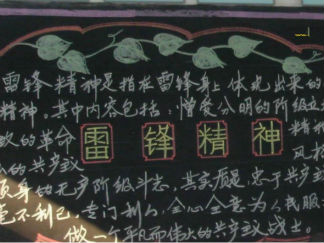 雷锋精神是指在雷锋身上体现出来的
精神。其中内容包括：憎爱分明的阶级立
的革命
雷锋精神
精神
风格
的共产主义
身的无产阶级斗志，其实质是忠于共产主
毫不利己，专门利人，全心全意为人民服
做一个平凡而伟大的共产主义战士。